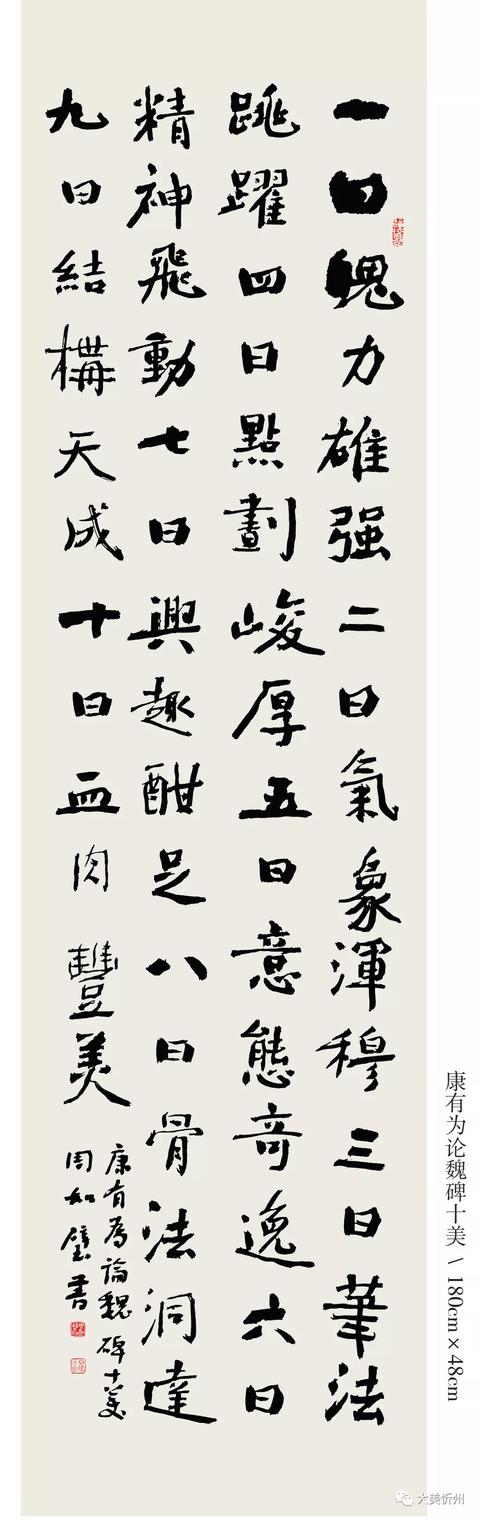 一曰魄力雄强二曰氣象渾穆三曰筆法
跳躍四曰點劃峻厚五曰意態奇逸六曰
精神飛動七曰興趣酣足八曰骨法洞達
九曰結構天成十曰血肉豐美
康有為論魏碑十美
周如璧書
康有为论魏碑十美 \ 180cm×48cm
大美忻州